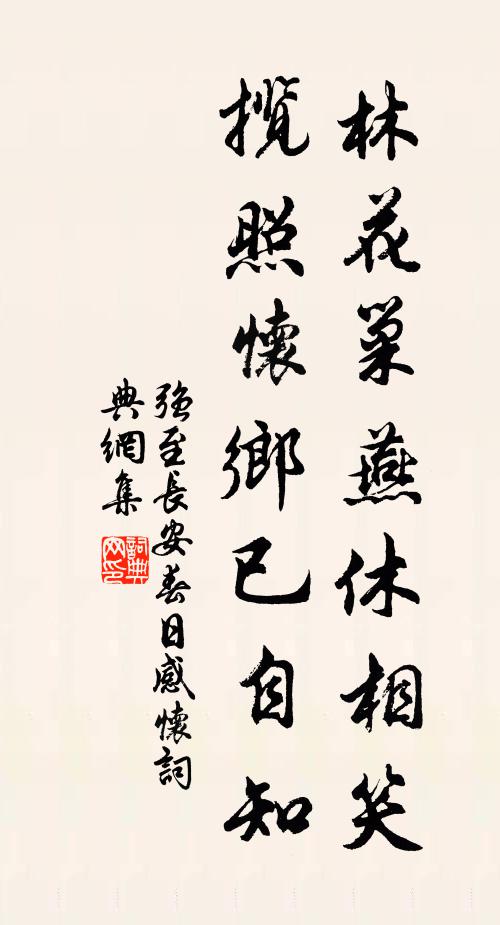 林花巢燕休相笑
攬照懷鄉已自知
強至長安春日感懷詞
典網集
詞典
网印